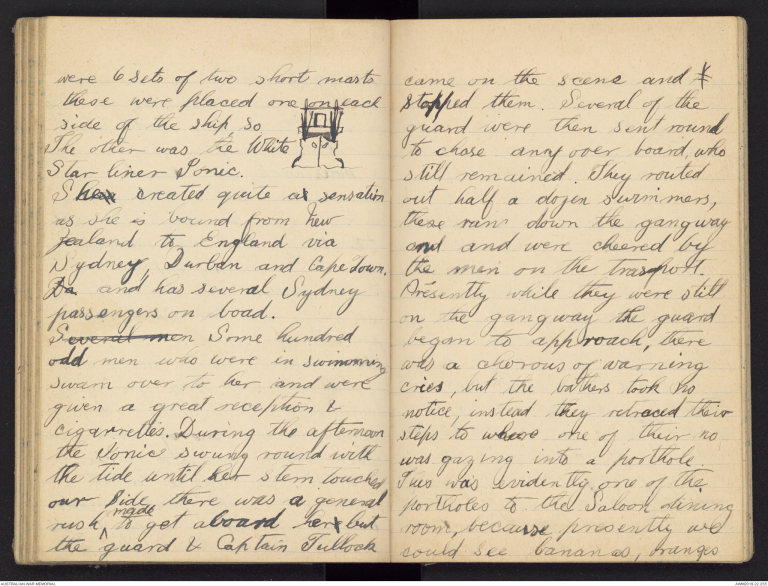 were 6 sets of two short masts
these were placed one on each
side of the ship so
The other was the White
Star liner Ionic.
She created quite a sensation
as she is bound from New
Zealand to England via
Sydney, Durban and Cape Town.
and has several Sydney
passengers on boad.
Several men Some hundred
odd men who were in swimming
swam over to her and were
given a great reception &
cigarrettes. During the afternoon
the Ionic swung round with
the tide until her stern touched
our side, there was a general
rush made to get aboard her but
the guard & Captain Tullock
came on the scene and
stopped them. Several of the
guard were then sent round
to chase any over board, who
still remained. They routed
out half a dozen swimmers,
these ran down the gangway
and and were cheered by
the men on the trasport.
Presently while they were still
on the gangway the guard
began to approach, there
was a chorous of warning
cries, but the bathers took no
notice, instead they retraced their
steps to where one of their no
was gazing into a porthole.
This was evidently one of the
portholes to the Saloon dining
room, because presently we
could see bananas, oranges
AUSTRALIAN WAR MEMORIAL